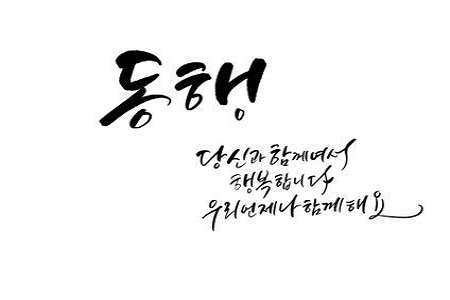 동행
당신과 함께여서
행복합니다
우리 언제나 함께해요